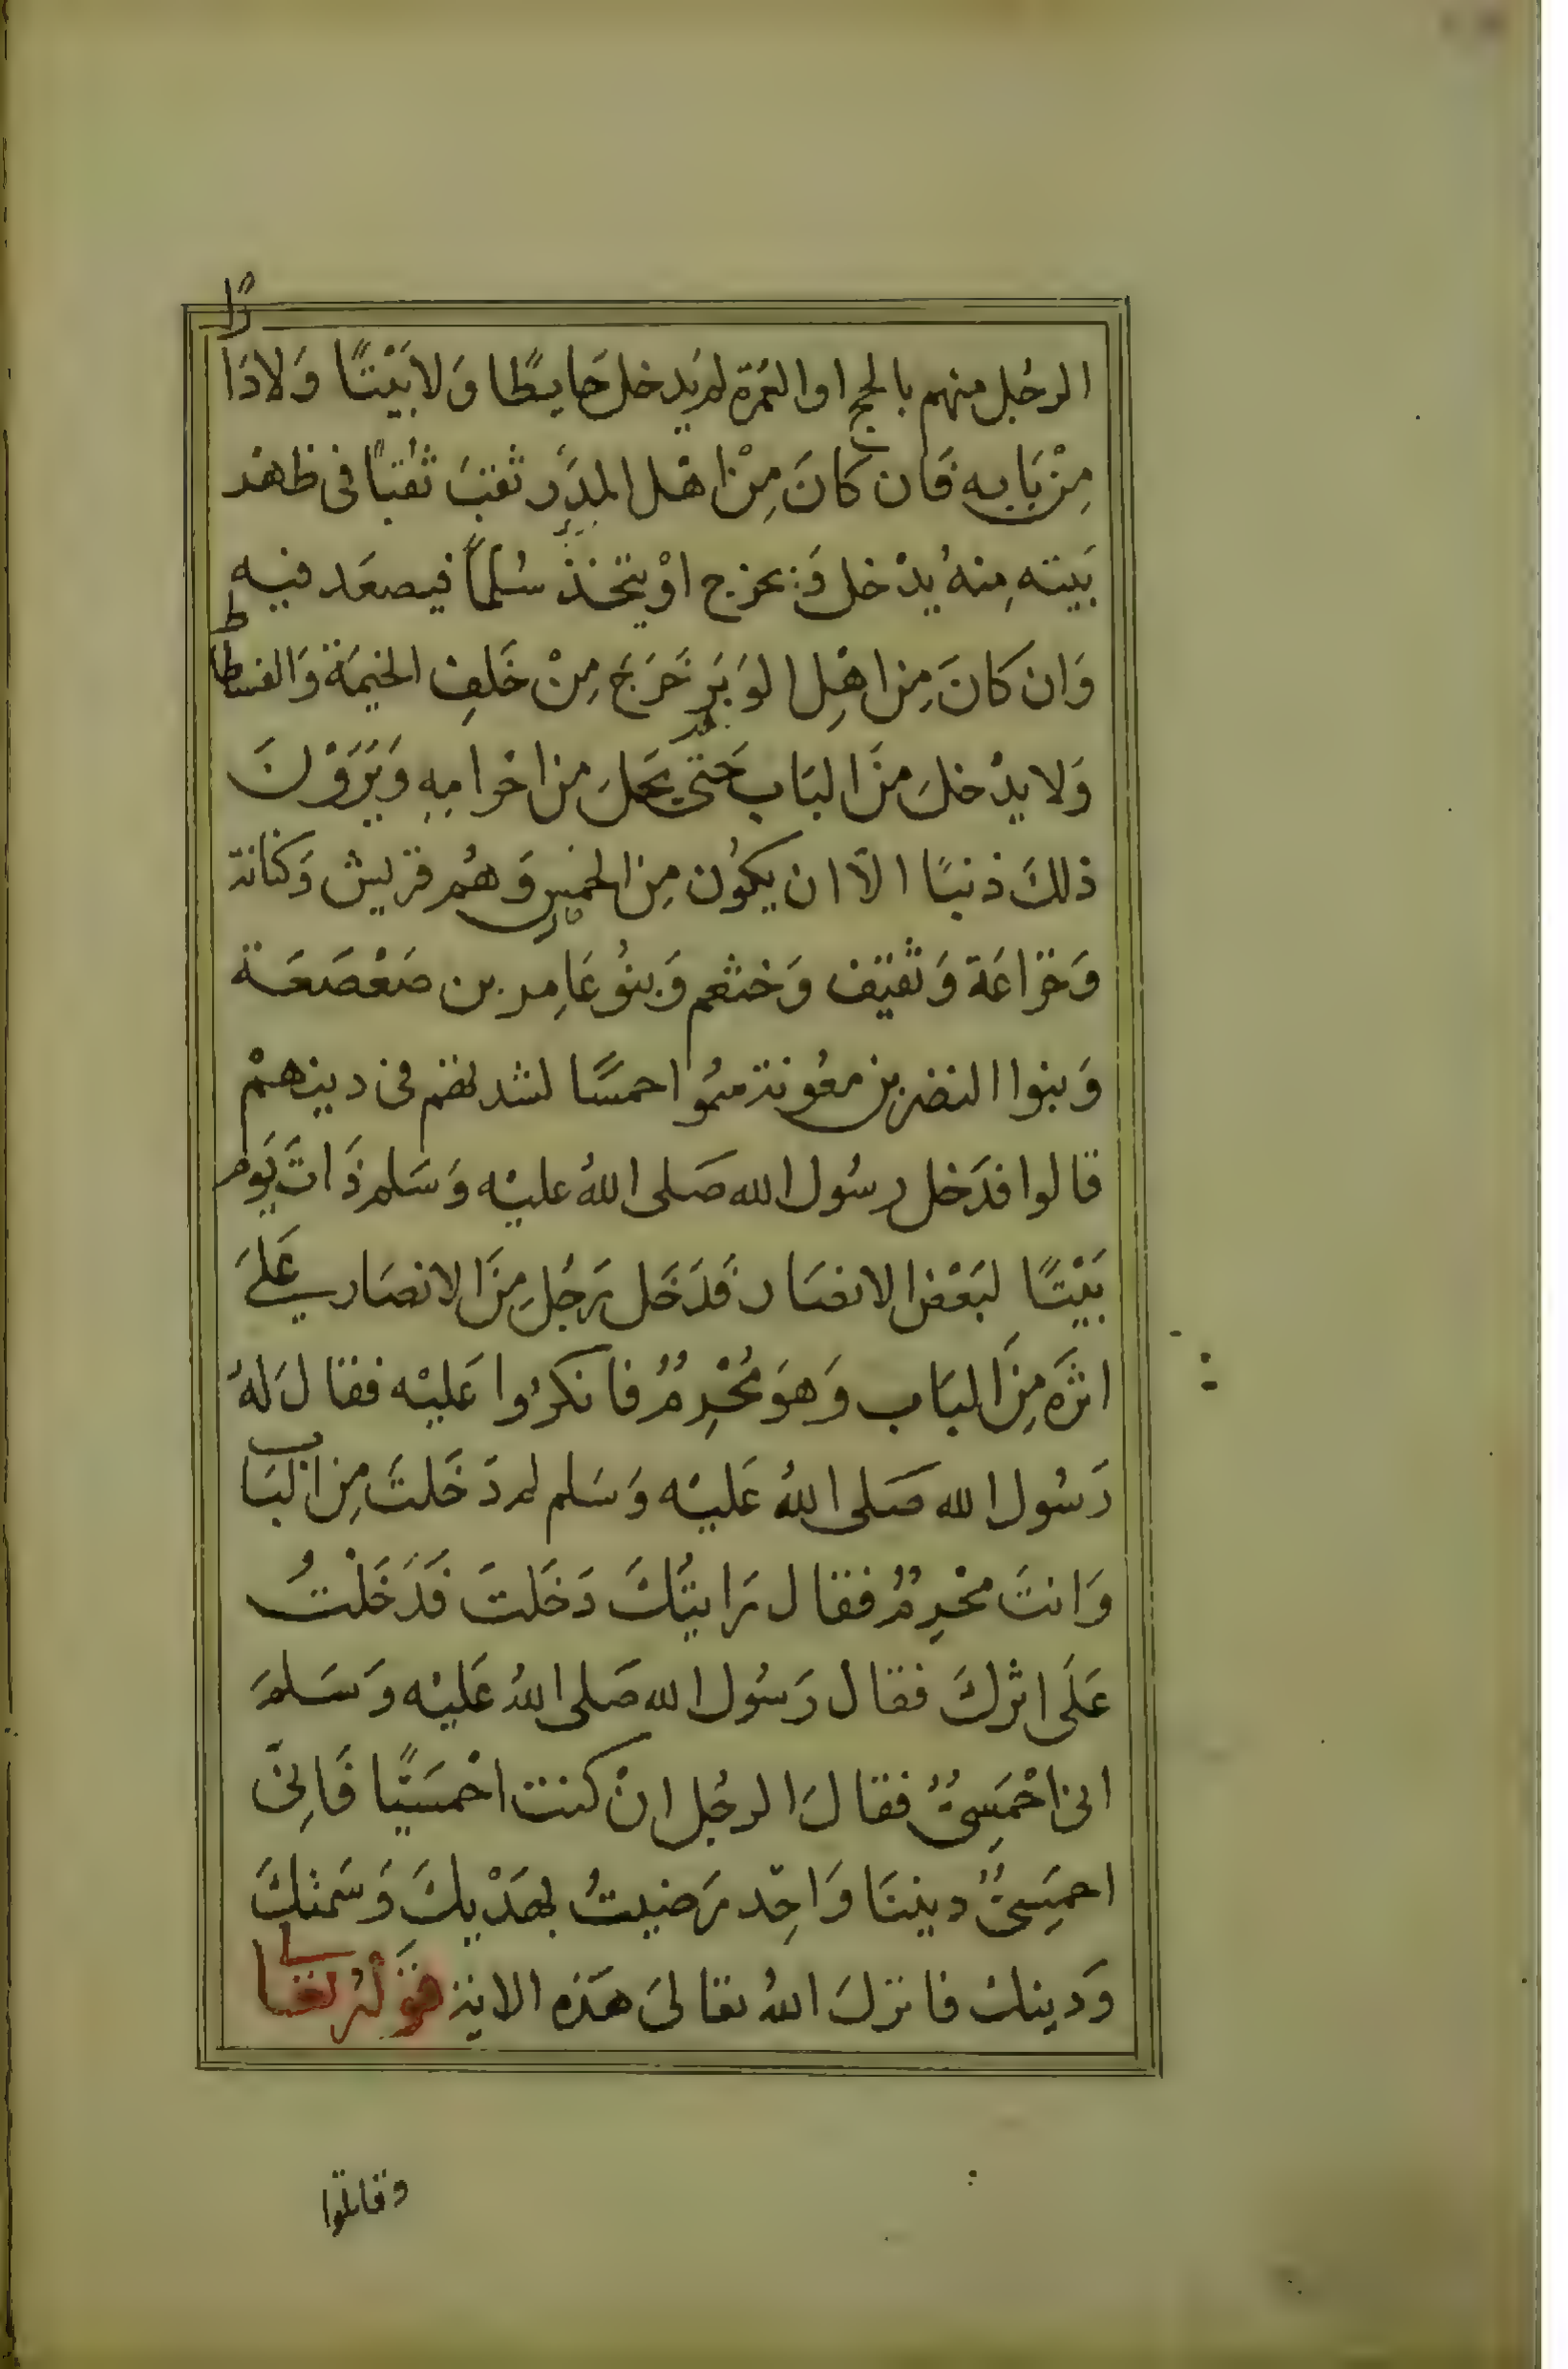 الرجُل منهم بالحج او العُمرة لم يَدخل حَايطًا وَلا بَيْتًا وَلا دَارًا
مِنْ بَابِه فَان كانَ مِنْ اهْل المدَرِ ثقبَ ثقْبًا فى ظاهر
بَيته مِنهُ يدْخل وَيخرج اوْ يتخذ سُلمًا فيصعَد فيه
وَان كانَ مِن اهْلِ الوَبَرِ خَرَجَ مِنْ خَلفِ الخيمَة وَالفسطاط
وَلا يدْخلَ منَ البَاب حَتى يَحلَ من احْرامِهِ وَيَرَوْنَ
ذلكَ ذنبًا الاّ ان يكوُن مِن الحمْسِ وَهُم قريش وَكنانة
وَخزاعَة وَثقيف وَخثعم وَبنوُ عَامِر بن صَعْصَعَة
وَبنوا النضر بن معوُنة سمُوا حمسًا لشدتهم فى دينهمْ
قالوا فدَخل رسُول الله صَلى اللهُ عليْه وَسَلم ذَاتَ يَوم
بَيْتًا لبَعْض الانصَار فَدَخَل رَجُل مِنَ الانصَار عَلىَ
اثرَه مِنَ البَاب وَهوَ مُحْرِمٌ فانكرُوا عَليْه فقال لَهُ
رَسُول الله صَلى اللهُ عَليْه وَسَلم لم دَخَلتَ مِن البَاب
وَانتَ محْرِمٌ فقال رَايتُكَ دَخَلتَ فَدَخَلْتُ
عَلَى اثركَ فقالَ رَسُول الله صَلى اللهُ عَليْه وَسَلمَ
انى احْمَسِىٌّ فقالَ الرجُل انْ كنت احْمَسيًّا فَاِنىّ
احمَسِىٌّ ديننَا وَاحِد رَضيتُ بهَدْيكَ وَسَمتكَ
وَدينكَ فانزلَ اللهُ تعالىَ هَذه الاية قَوْلهُ تعَالى
وقاتلوا